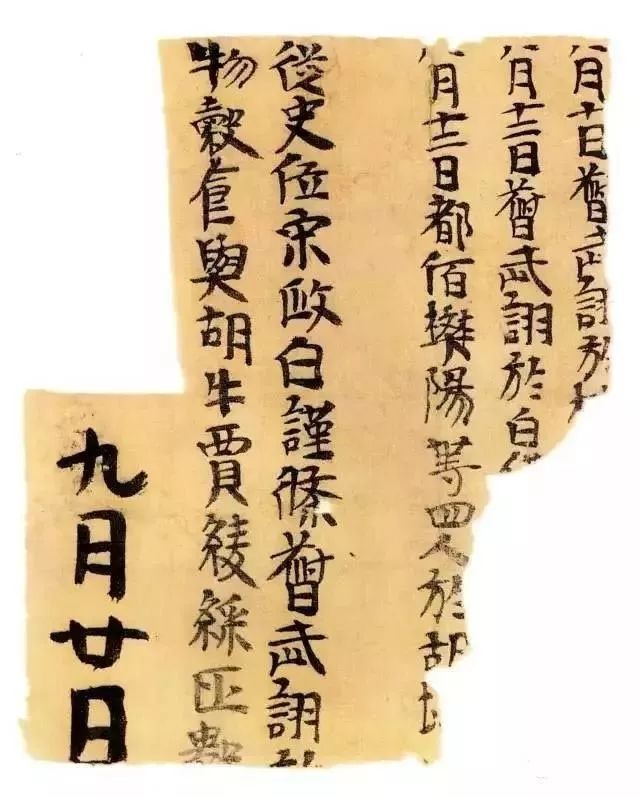 月十日督武詡於
月十二日督武詡於白
月十三日都佰樊陽等四人於胡
從史位宋政白謹條督武詡
物穀食與胡牛賈綾綵匹數
九月廿日